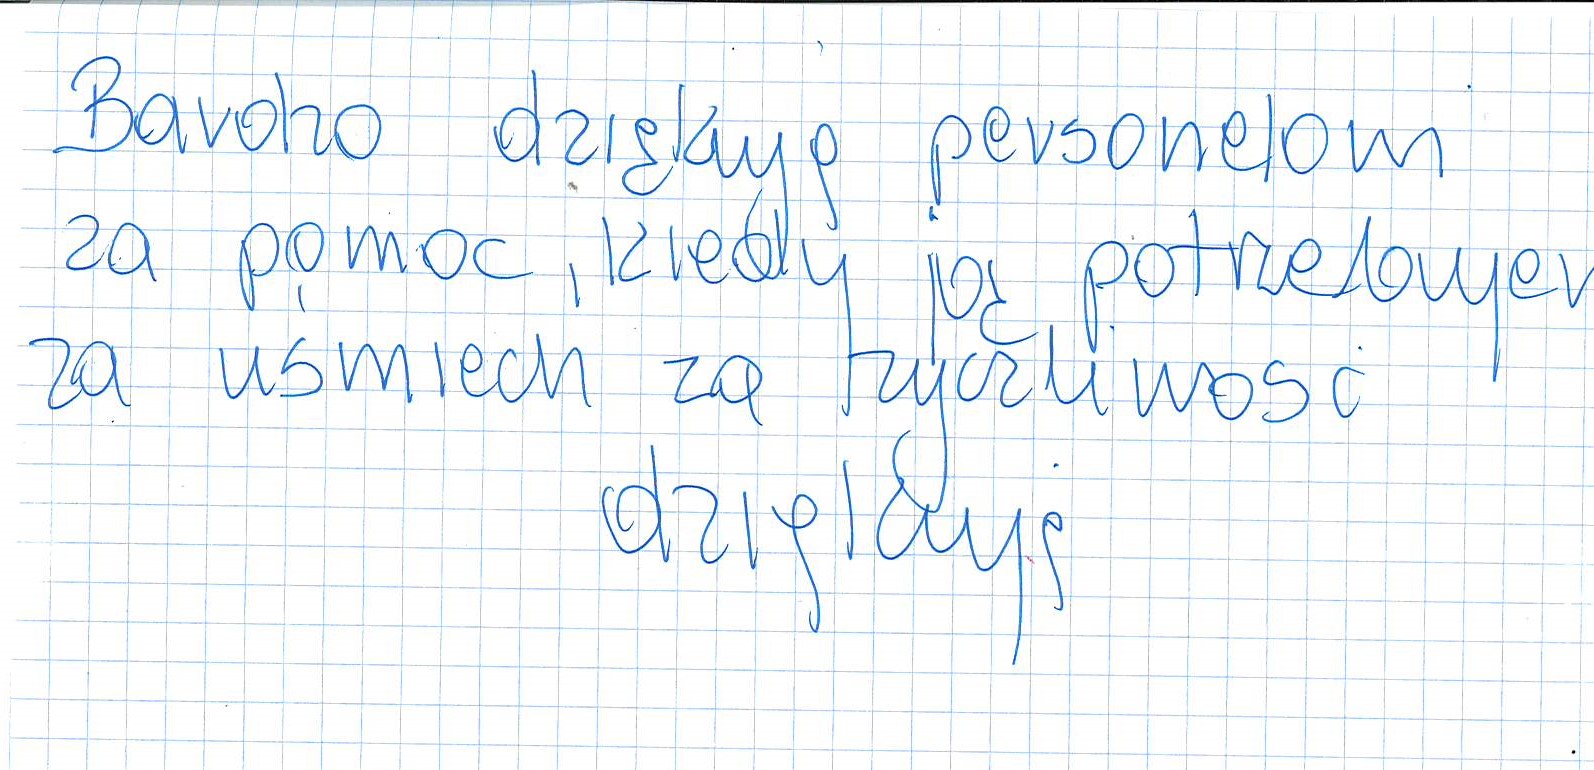 Bardzo dziękuję personelom
za pomoc, kiedy ją potrzebujem
za uśmiech za życzliwość
dziękuję